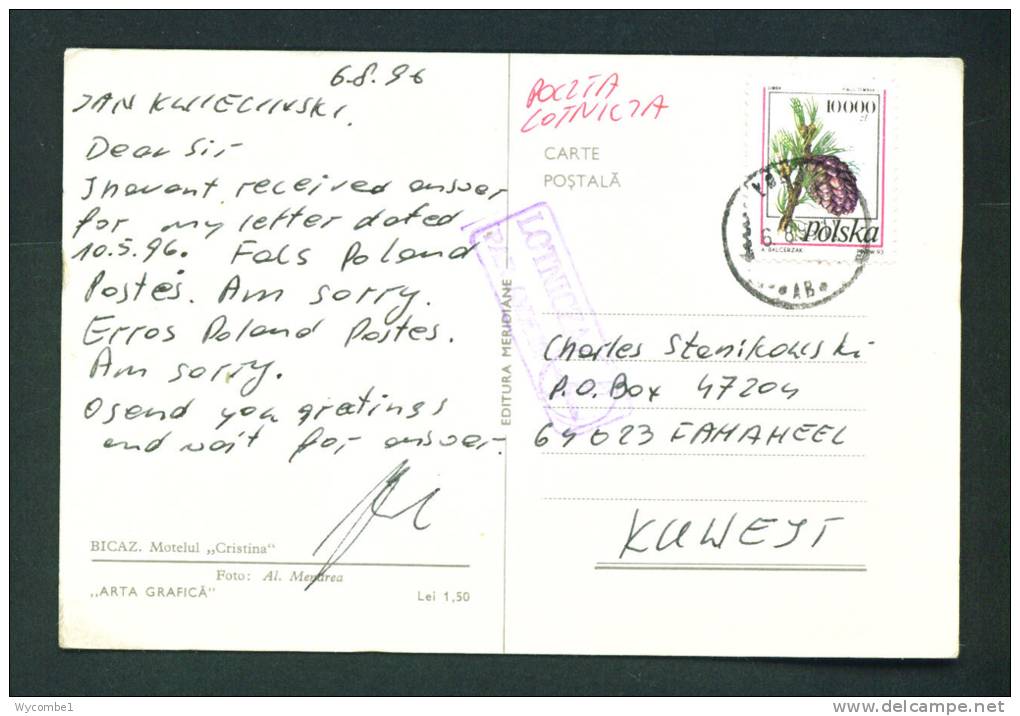 6.8.96
JAN KWIECINSKI.
Dear Sir
I havent received answer
for my letter dated
10.5.96. Fals Poland
Postes. Am sorry.
Erros Poland Postes.
Am sorry.
I send you gratings
and wait for answer.
BICAZ. Motelul „Cristina“
Foto: Al. Mendrea
„ARTA GRAFICĂ“
Lei 1,50
EDITURA MERIDIANE
LOTNICZA
POCZTA
LOTNICZA
CARTE
POȘTALĂ
10000
zł
Polska
A. BALCERZAK
6. 8.9
AB
Charles Stanikowski
P.O.Box 47204
64023 FAHAHEEL
KUWEJT
Wycombe1
www.delcampe.net